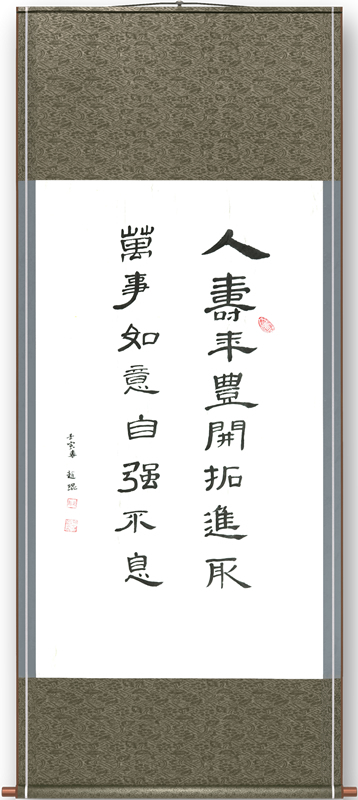 人壽年豊開拓進取
萬事如意自强不息